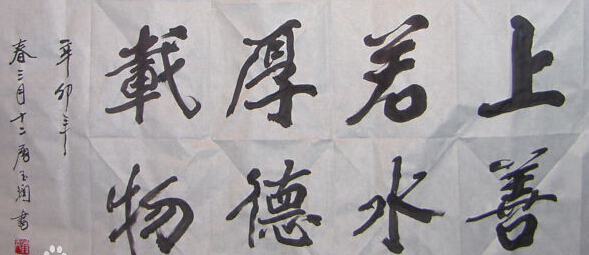 上善
若水
厚德
載物
辛卯年
春三月十二
书